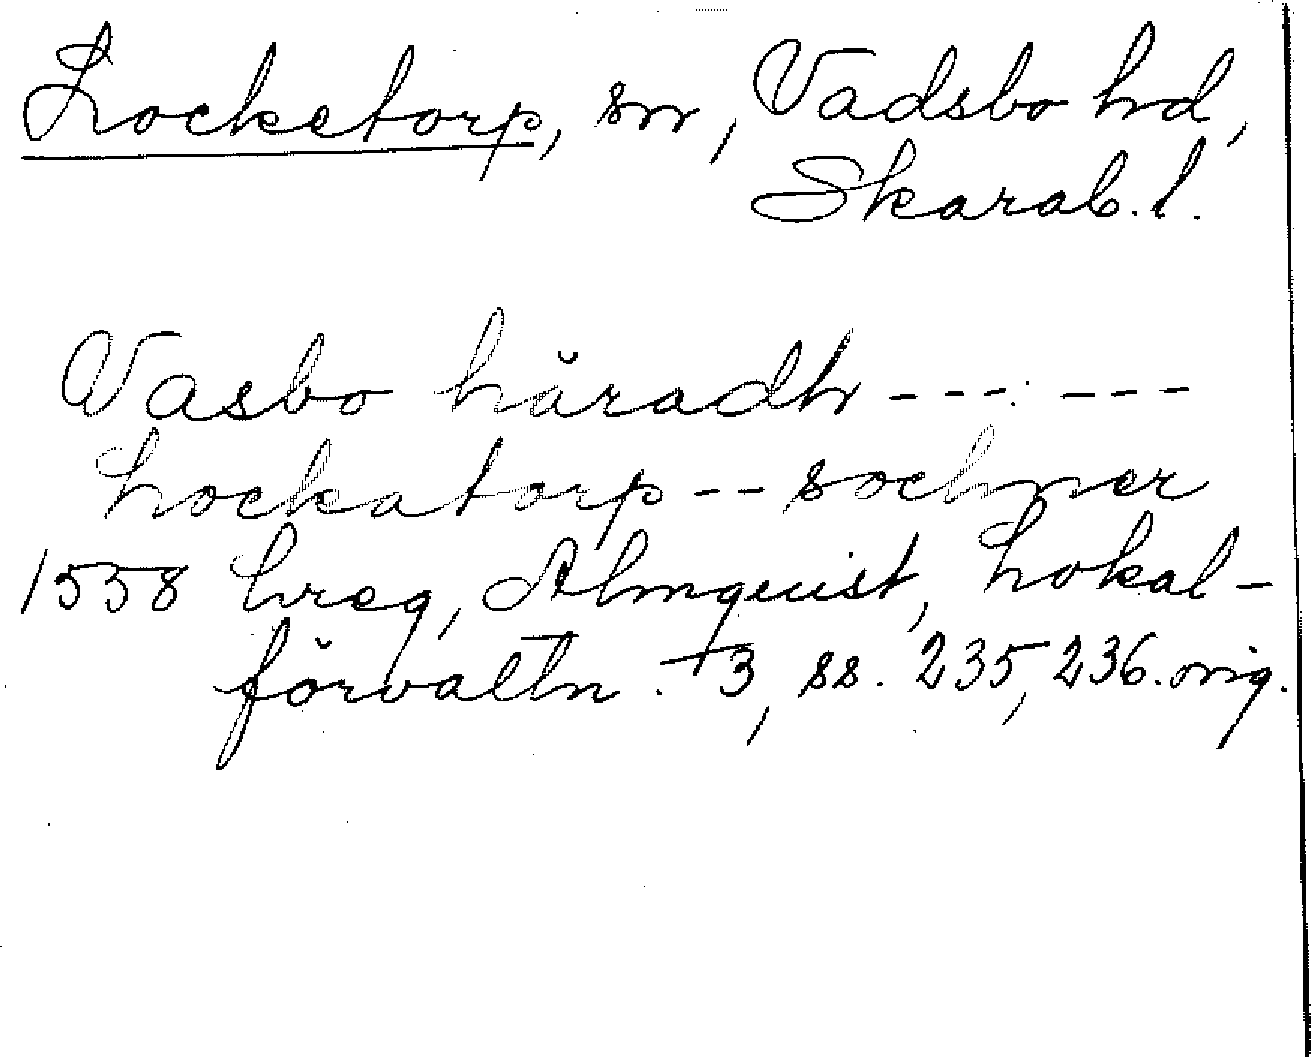 Locketorp, sn, Vadsbo hd,
Skarab. l.
Vasbo häradh --- ---
Lockatorp -- sochner
1558 hreg, Almquist, Lokal-
förvaltn. +3, ss. 235, 236. orig.